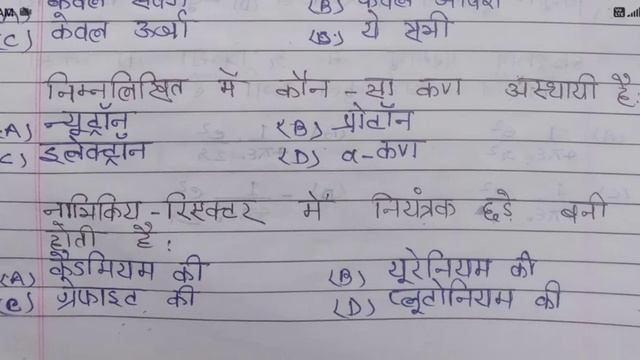 केवल (B) केवल
(C) केवल ऊर्जा (D) ये सभी
निम्नलिखित में कौन-सा कण अस्थायी है:
(A) न्यूट्रॉन (B) प्रोटॉन
(C) इलेक्ट्रॉन (D) α-कण
नाभिकिय-रिएक्टर में नियंत्रक छड़े बनी
होती है:
(A) कैडमियम की (B) यूरेनियम की
(C) ग्रेफाइट की (D) प्लूटोनियम की